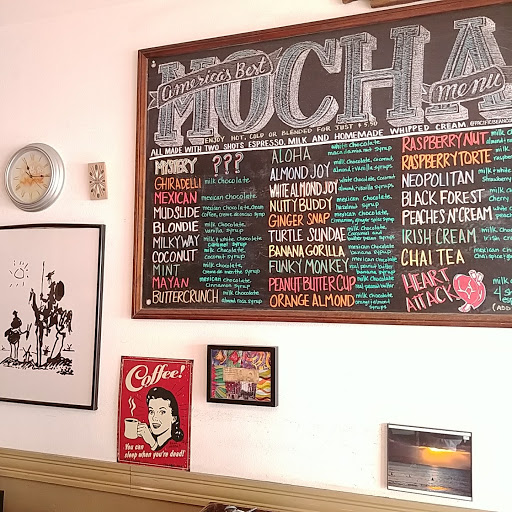 America's Best
MOCHA
menu
ENJOY HOT, COLD OR BLENDED FOR JUST
ALL MADE WITH TWO SHOTS ESPRESSO, MILK AND HOMEMADE WHIPPED CREAM
MYSTERY ???
GHIRADELLI milk chocolate
MEXICAN mexican chocolate
MUDSLIDE
BLONDIE white chocolate
vanilla syrup
MILKY WAY milk & white chocolate
caramel syrup
COCONUT milk chocolate
coconut syrup
MINT milk chocolate
creme de menthe syrup
MAYAN mexican chocolate
cinnamon syrup
BUTTERCRUNCH milk chocolate
almond roca syrup
ALOHA white chocolate
macadamia nut syrup
ALMOND JOY milk chocolate, coconut
almond & vanilla syrups
WHITE ALMOND JOY white chocolate, coconut
almond & vanilla syrups
NUTTY BUDDY mexican chocolate
hazelnut syrup
GINGER SNAP mexican chocolate
TURTLE SUNDAE milk chocolate
BANANA GORILLA mexican chocolate
banana syrup
FUNKY MONKEY milk chocolate
banana syrup
PEANUT BUTTER CUP milk chocolate
real peanut butter
ORANGE ALMOND milk chocolate
orange & almond
syrups
RASPBERRY NUT
RASPBERRY TORTE
NEOPOLITAN
BLACK FOREST
cherry
PEACHES N' CREAM
IRISH CREAM
CHAI TEA
HEART
ATTACK
(ADD
Coffee!
You can
sleep when you're dead!